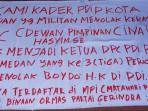 KAMI KADER PDIP KOTA
DAN 49 RANTING MENOLAK KE
C (DEWAN PIMPINAN C) NA
HASYIM.SE
K MENJADI KETUA DPC PDI.P
EDAN YANG KE 3 (TIGA) PERIO
MENOLAK BOYDO H.K DI PDI.
A TERDAFTAR DI MPI (MTAHARI
BINAAN ORMAS PARTAI GERINDRA